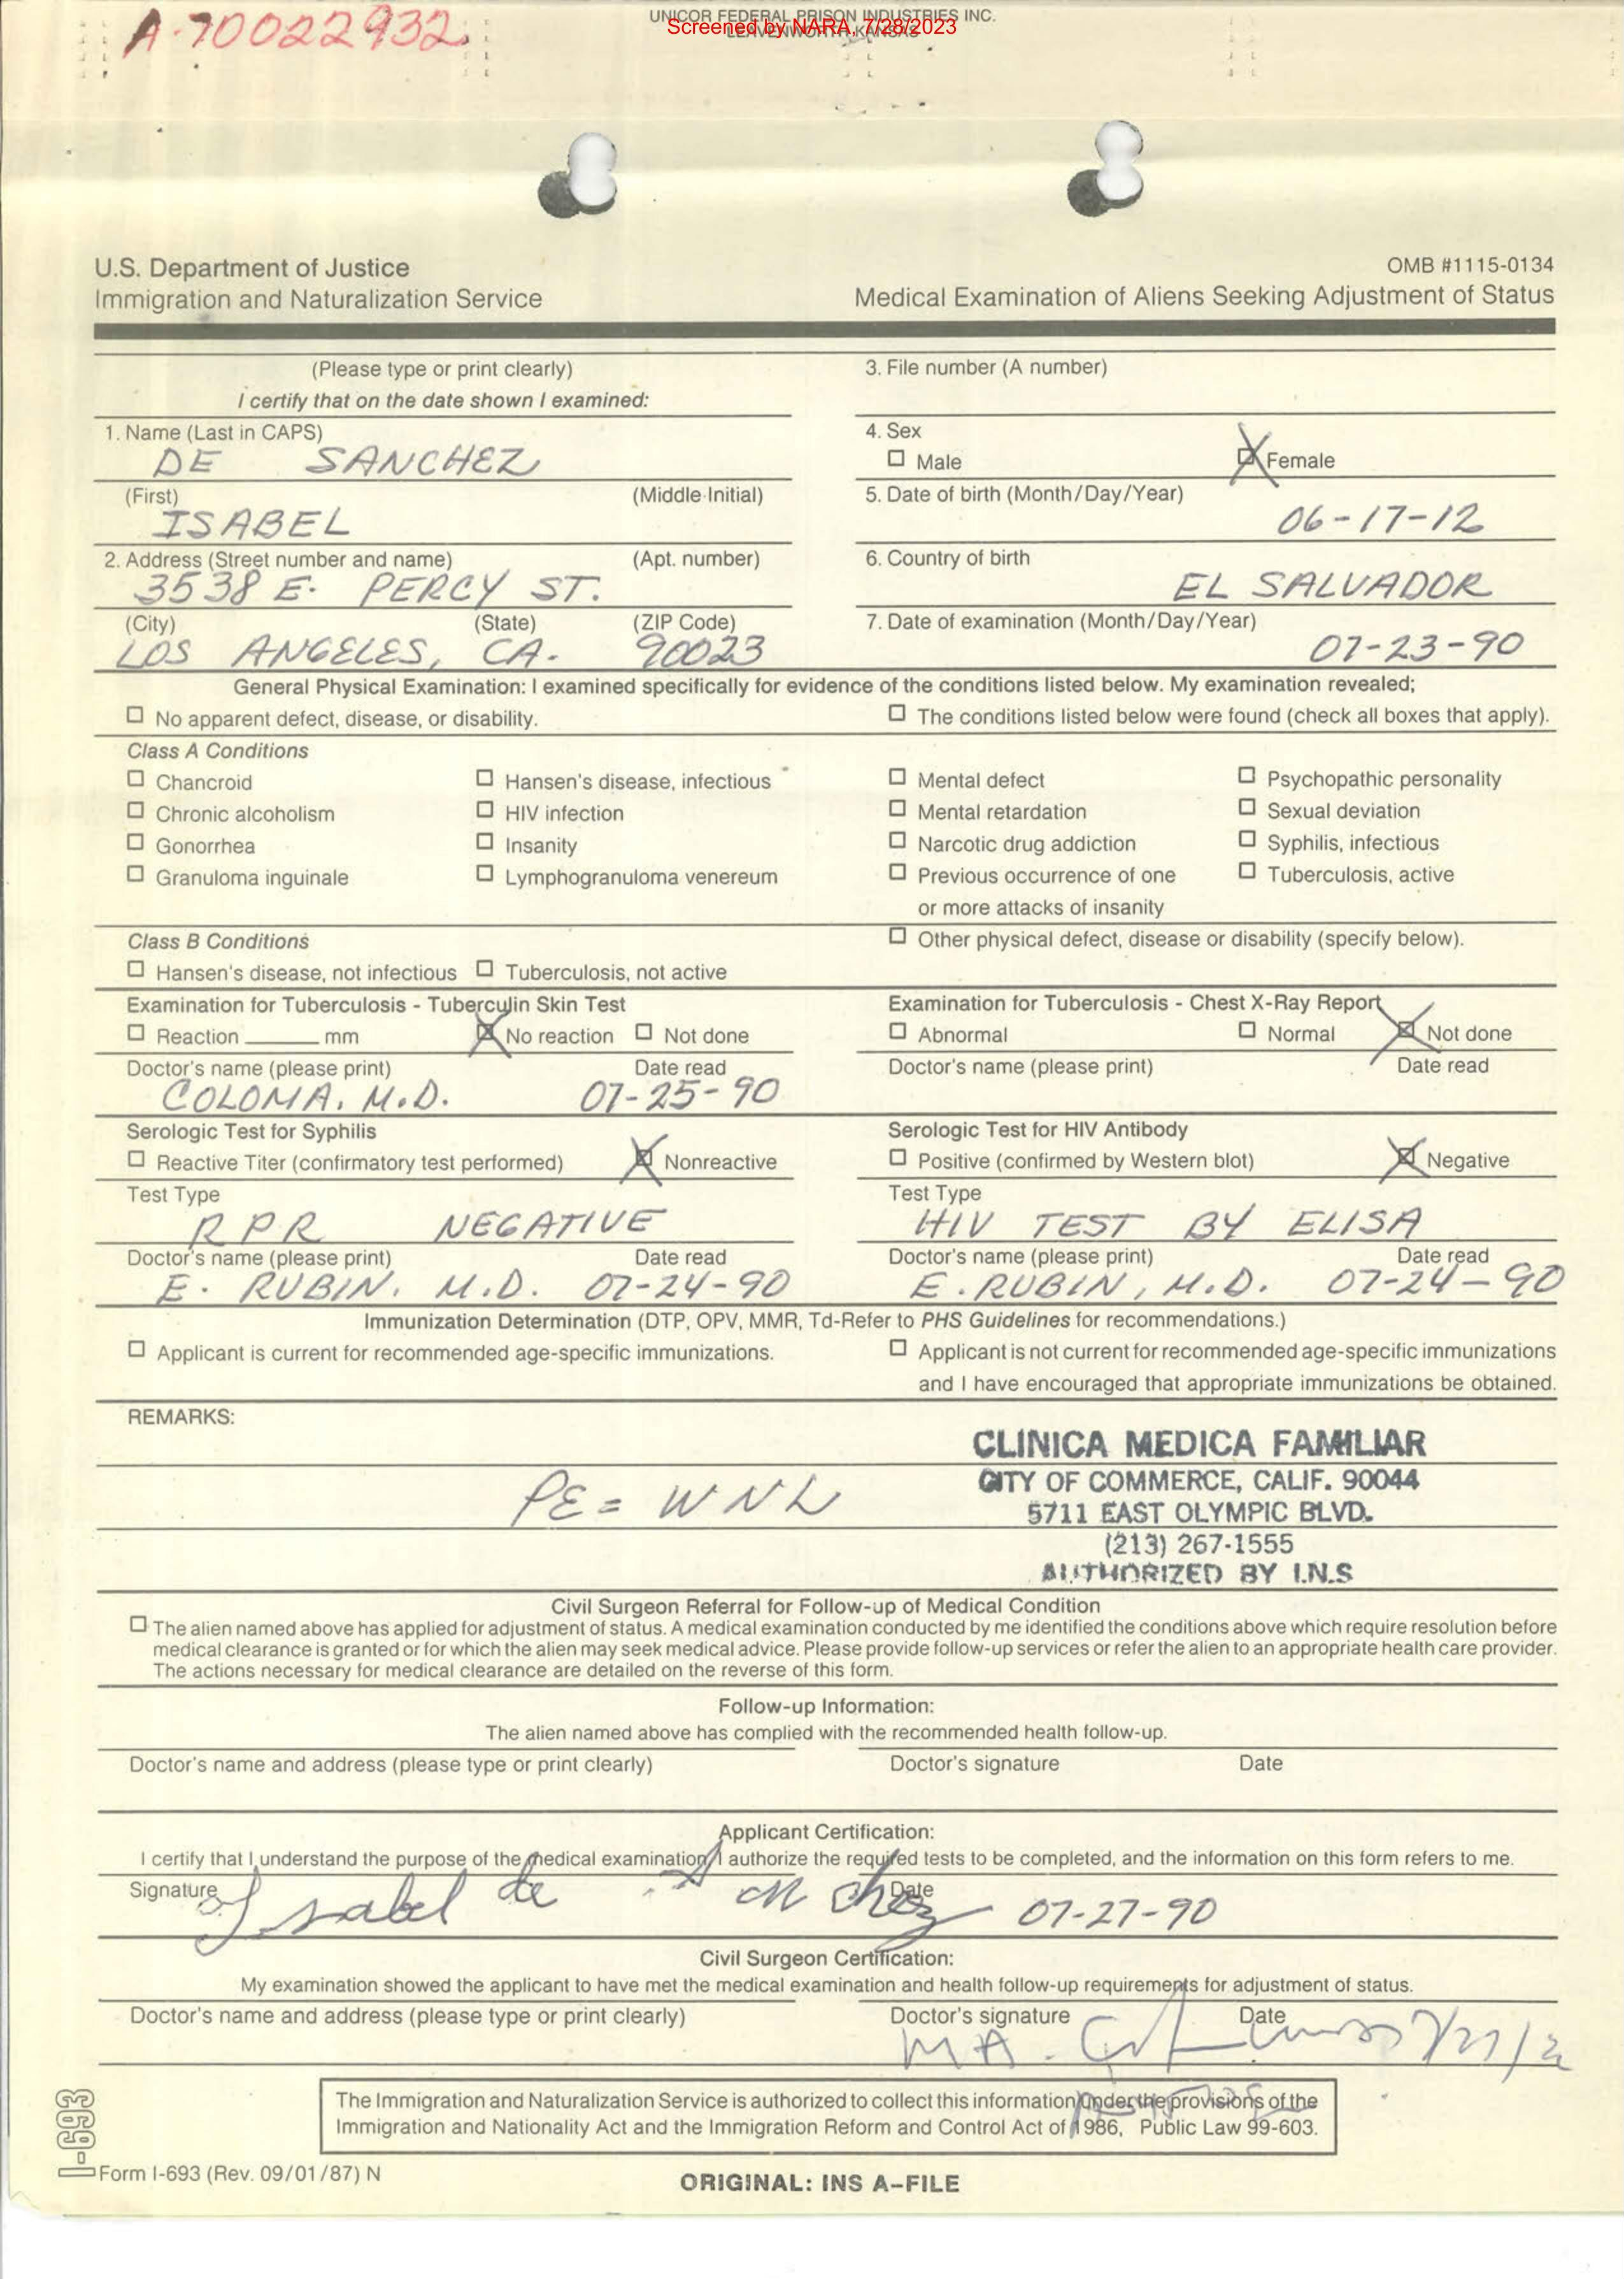 A-70022932
UNICOR FEDERAL PRISON INDUSTRIES INC.
LEAVENWORTH, KANSAS
Screened by NARA, 7/28/2023
U.S. Department of Justice
Immigration and Naturalization Service
OMB #1115-0134
Medical Examination of Aliens Seeking Adjustment of Status
(Please type or print clearly)
I certify that on the date shown I examined:
3. File number (A number)
1. Name (Last in CAPS)
DE SANCHEZ
4. Sex
Male Female
(First) (Middle Initial)
ISABEL
5. Date of birth (Month/Day/Year)
06-17-12
2. Address (Street number and name) (Apt. number)
3538 E. PERCY ST.
6. Country of birth
EL SALVADOR
(City) (State) (ZIP Code)
LOS ANGELES, CA. 90023
7. Date of examination (Month/Day/Year)
07-23-90
General Physical Examination: I examined specifically for evidence of the conditions listed below. My examination revealed;
No apparent defect, disease, or disability. The conditions listed below were found (check all boxes that apply).
Class A Conditions
Chancroid Hansen's disease, infectious Mental defect Psychopathic personality
Chronic alcoholism HIV infection Mental retardation Sexual deviation
Gonorrhea Insanity Narcotic drug addiction Syphilis, infectious
Granuloma inguinale Lymphogranuloma venereum Previous occurrence of one Tuberculosis, active
or more attacks of insanity
Class B Conditions Other physical defect, disease or disability (specify below).
Hansen's disease, not infectious Tuberculosis, not active
Examination for Tuberculosis - Tuberculin Skin Test
Reaction mm No reaction Not done
Examination for Tuberculosis - Chest X-Ray Report
Abnormal Normal Not done
Doctor's name (please print) Date read
COLOMA. M.D. 07-25-90
Doctor's name (please print) Date read
Serologic Test for Syphilis
Reactive Titer (confirmatory test performed) Nonreactive
Serologic Test for HIV Antibody
Positive (confirmed by Western blot) Negative
Test Type
RPR NEGATIVE
Test Type
HIV TEST BY ELISA
Doctor's name (please print) Date read
E. RUBIN. M.D. 07-24-90
Doctor's name (please print) Date read
E. RUBIN, M.D. 07-24-90
Immunization Determination (DTP, OPV, MMR, Td-Refer to PHS Guidelines for recommendations.)
Applicant is current for recommended age-specific immunizations. Applicant is not current for recommended age-specific immunizations
and I have encouraged that appropriate immunizations be obtained.
REMARKS:
PE = WNL
CLINICA MEDICA FAMILIAR
CITY OF COMMERCE, CALIF. 90044
5711 EAST OLYMPIC BLVD.
(213) 267-1555
AUTHORIZED BY I.N.S
Civil Surgeon Referral for Follow-up of Medical Condition
The alien named above has applied for adjustment of status. A medical examination conducted by me identified the conditions above which require resolution before
medical clearance is granted or for which the alien may seek medical advice. Please provide follow-up services or refer the alien to an appropriate health care provider.
The actions necessary for medical clearance are detailed on the reverse of this form.
Follow-up Information:
The alien named above has complied with the recommended health follow-up.
Doctor's name and address (please type or print clearly) Doctor's signature Date
Applicant Certification:
I certify that I understand the purpose of the medical examination, I authorize the required tests to be completed, and the information on this form refers to me.
Signature Date
Isabel de Sanchez 07-27-90
Civil Surgeon Certification:
My examination showed the applicant to have met the medical examination and health follow-up requirements for adjustment of status.
Doctor's name and address (please type or print clearly) Doctor's signature Date
The Immigration and Naturalization Service is authorized to collect this information under the provisions of the
Immigration and Nationality Act and the Immigration Reform and Control Act of 1986, Public Law 99-603.
I-693
Form I-693 (Rev. 09/01/87) N
ORIGINAL: INS A-FILE